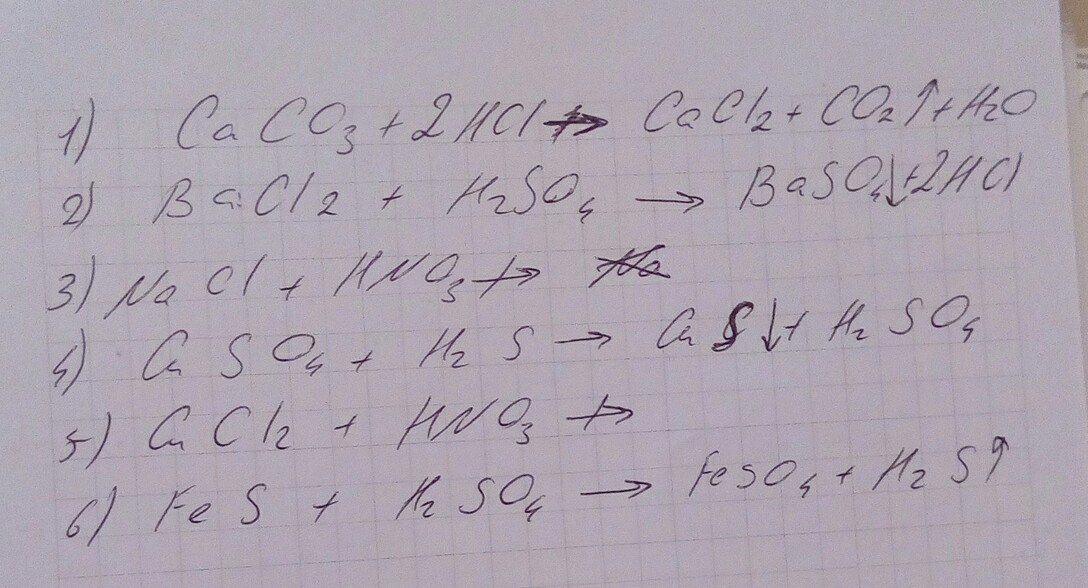 1) CaCO₃ + 2HCl → CaCl₂ + CO₂↑ + H₂O
2) BaCl₂ + H₂SO₄ → BaSO₄↓ + 2HCl
3) NaCl + HNO₃ ↛
4) CuSO₄ + H₂S → CuS↓ + H₂SO₄
5) CuCl₂ + HNO₃ ↛
6) FeS + H₂SO₄ → FeSO₄ + H₂S↑